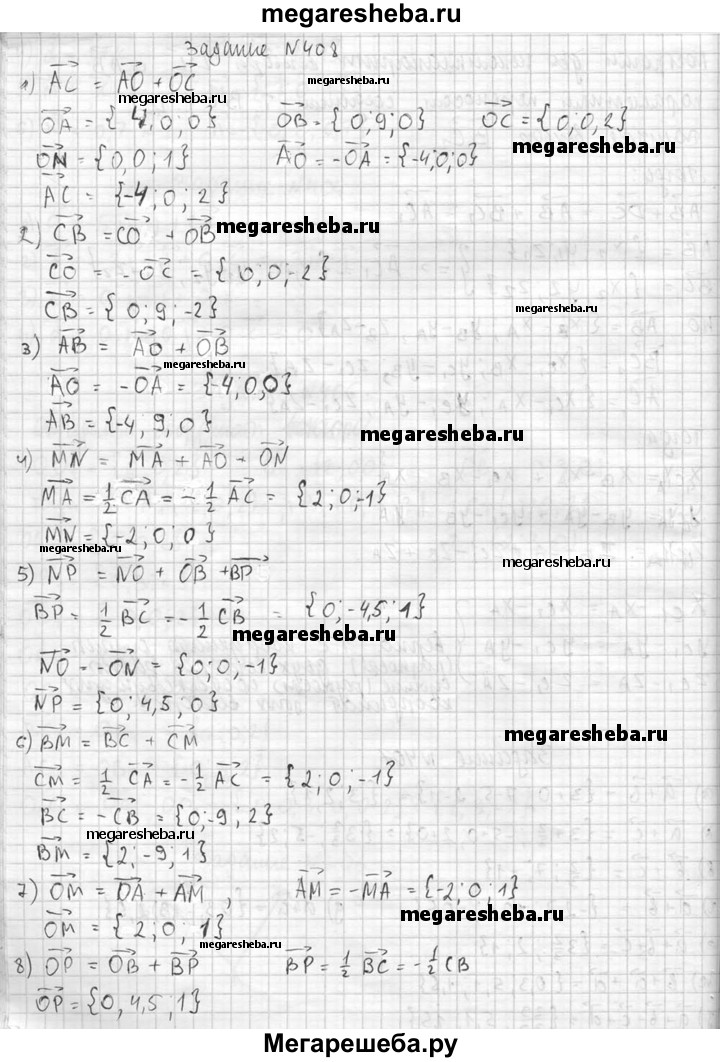 megaresheba.ru
Задание №408
1) AC = AO + OC
megaresheba.ru
megaresheba.ru
OA = {4; 0; 0} OB = {0; 9; 0} OC = {0; 0; 2}
megaresheba.ru
ON = {0, 0; 1} AO = -OA = {-4; 0; 0}
AC = {-4; 0; 2}
2) CB = CO + OB
megaresheba.ru
CO = -OC = {0; 0; -2}
CB = {0; 9; -2}
megaresheba.ru
3) AB = AO + OB
megaresheba.ru
AO = -OA = {-4; 0, 0}
AB = {-4, 9, 0}
megaresheba.ru
4) MN = MA + AO + ON
MA = 1/2 CA = -1/2 AC = {2; 0; -1}
MN = {-2; 0; 0}
megaresheba.ru
megaresheba.ru
5) NP = NO + OB + BP
BP = 1/2 BC = -1/2 CB = {0; -4,5; 1}
megaresheba.ru
NO = -ON = {0; 0, -1}
NP = {0; 4,5; 0}
megaresheba.ru
6) BM = BC + CM
CM = 1/2 CA = -1/2 AC = {2; 0; -1}
BC = -CB = {0; -9; 2}
megaresheba.ru
BM = {2; -9; 1}
7) OM = OA + AM, AM = -MA = {-2; 0; 1}
megaresheba.ru
OM = {2; 0; 1}
megaresheba.ru
8) OP = OB + BP BP = 1/2 BC = -1/2 CB
OP = {0, 4,5; 1}
Мегарешеба.ру